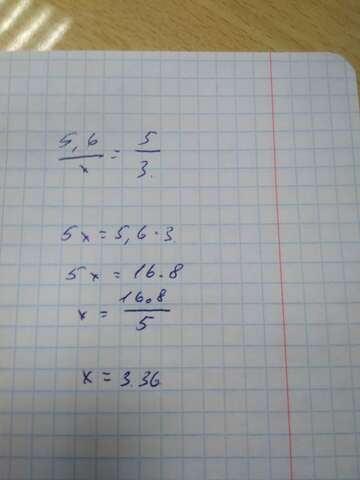 5,6/x = 5/3.
5x = 5,6·3
5x = 16.8
x = 16.8/5
x = 3.36